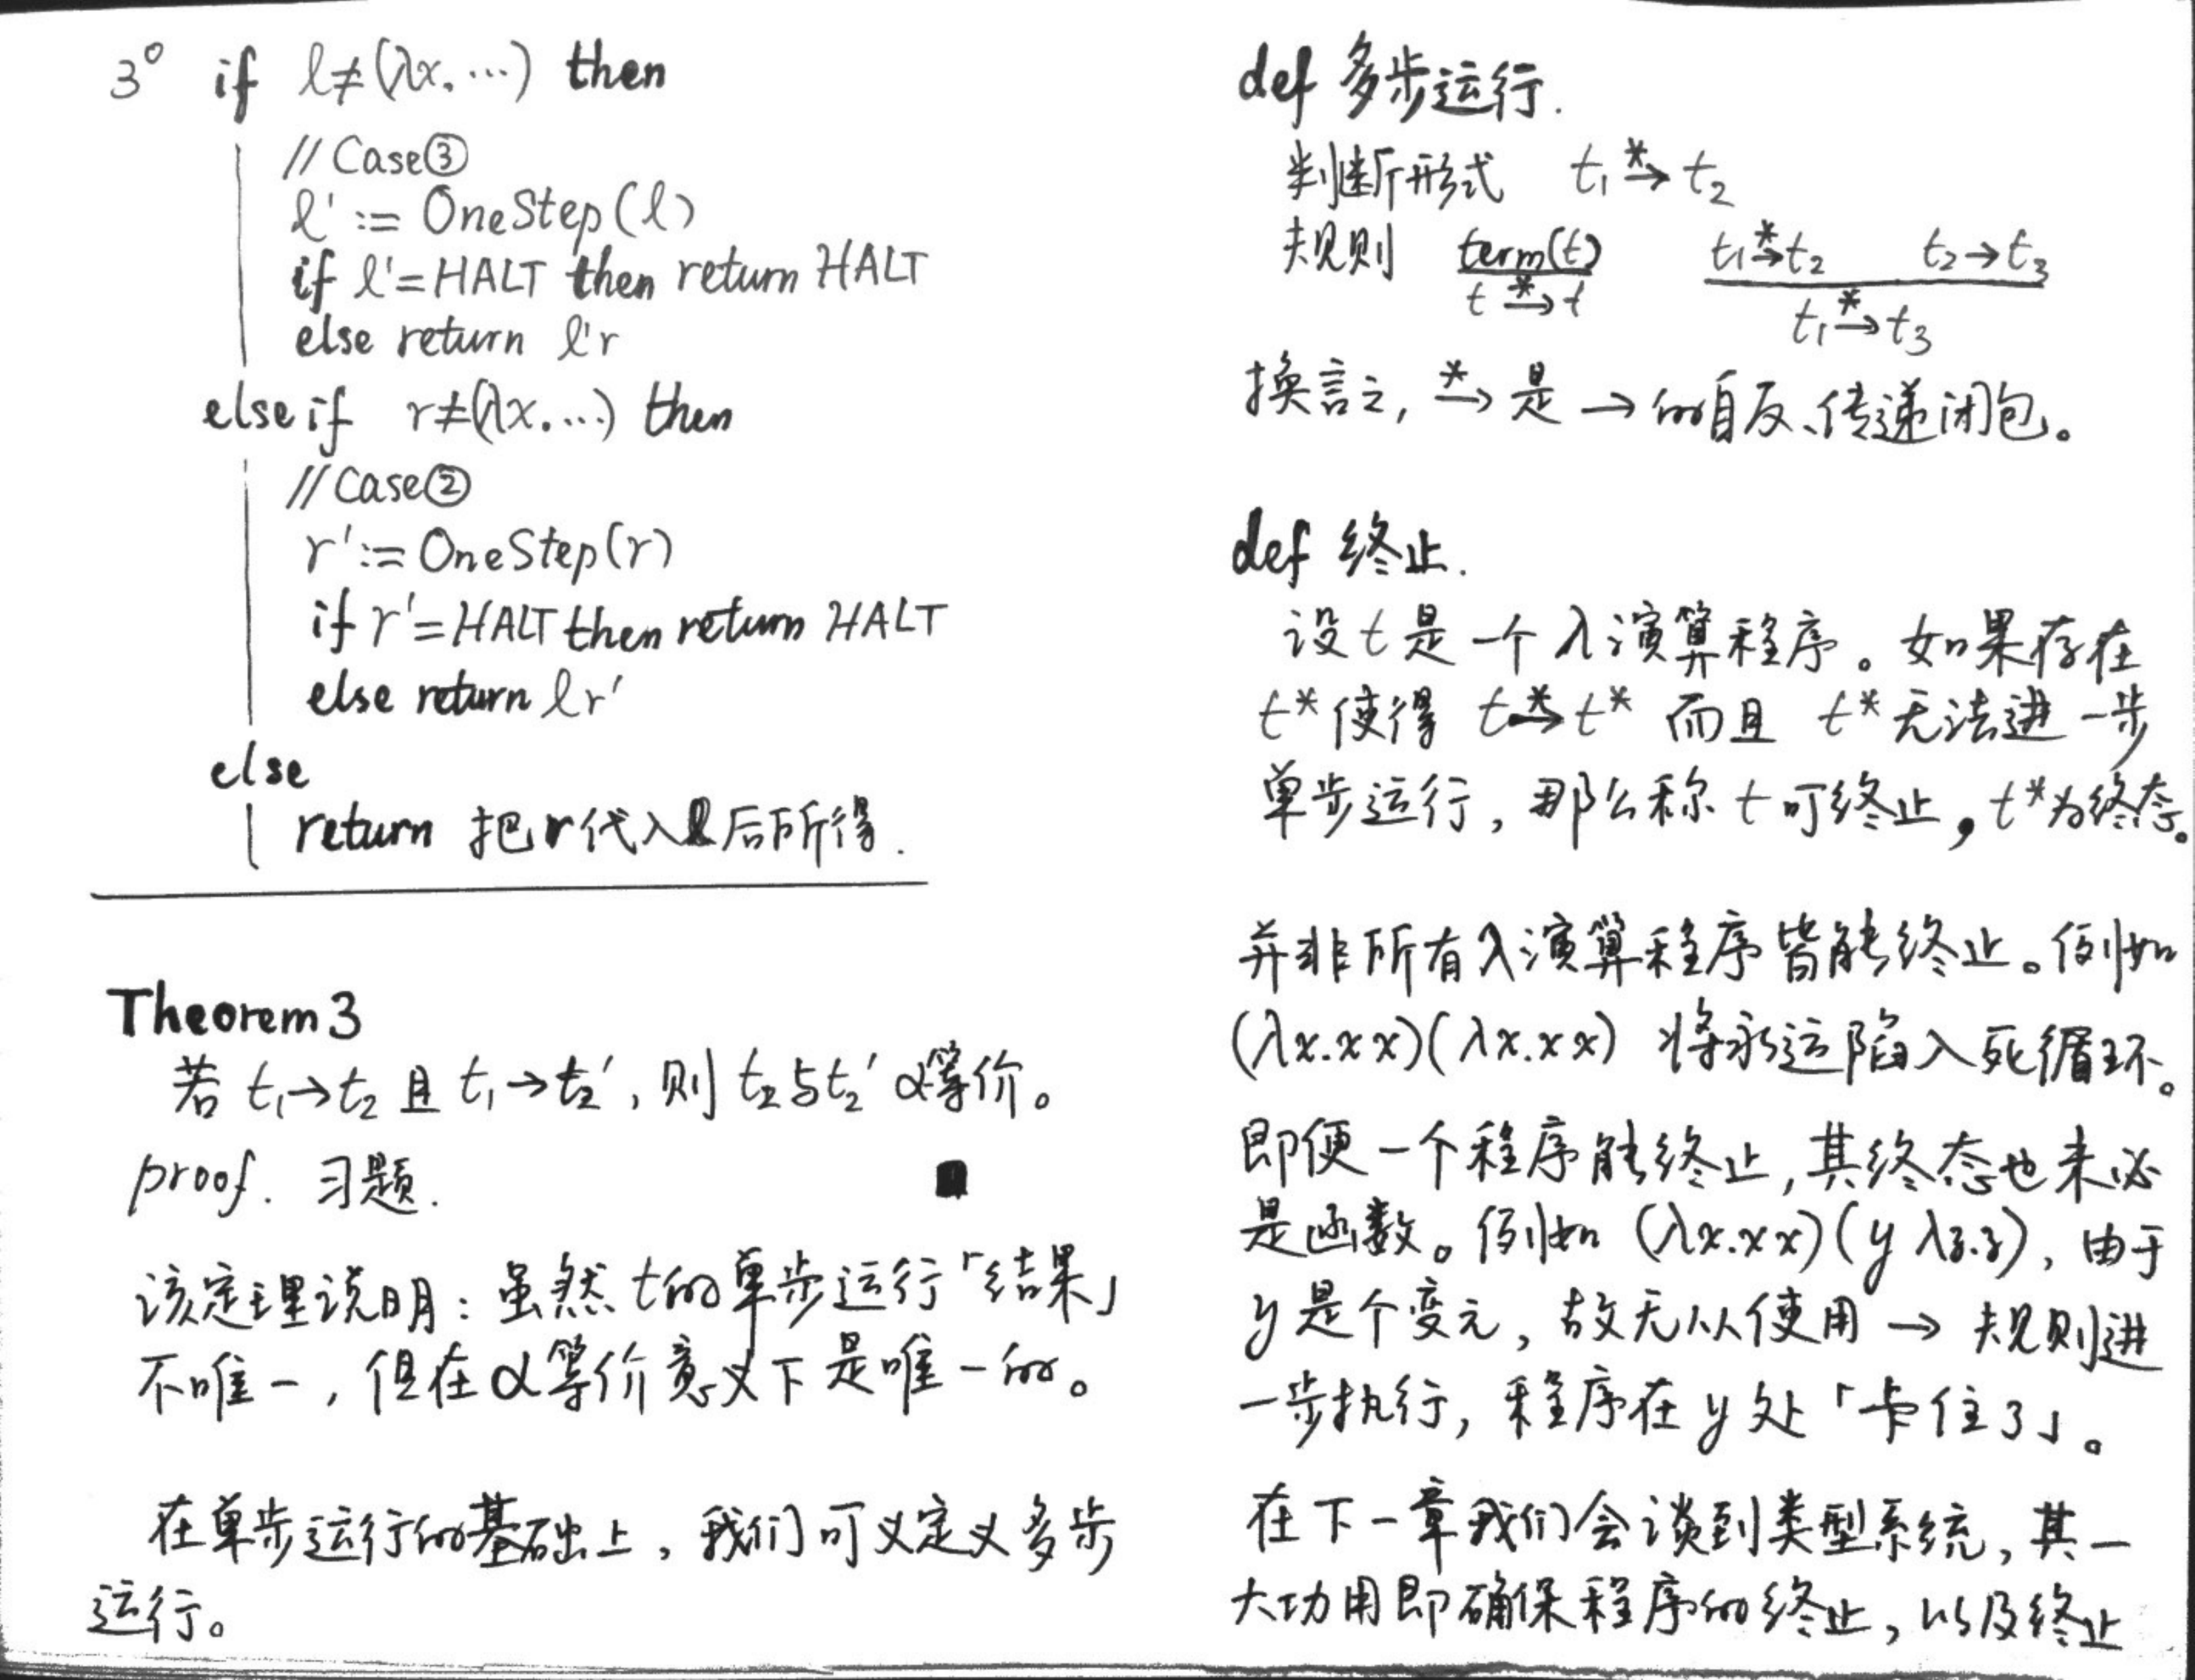 3° if l≠(λx.…) then
// Case③
l' := OneStep(l)
if l'=HALT then return HALT
else return l'r
else if r≠(λx.…) then
// Case②
r' := OneStep(r)
if r'=HALT then return HALT
else return lr'
else
return 把r代入l后所得.
Theorem 3
若 t₁→t₂ 且 t₁→t₂', 则 t₂与t₂' α等价。
proof. 习题. ■
该定理说明：虽然 t的单步运行「结果」
不唯一，但在α等价意义下是唯一的。
在单步运行的基础上，我们可以定义多步
运行。
def 多步运行.
判断形式 t₁ →* t₂
规则 term(t) t₁ →* t₂ t₂→t₃
t →* t t₁ →* t₃
换言之, →* 是 → 的自反、传递闭包。
def 终止.
设 t 是一个 λ演算程序。如果存在
t* 使得 t →* t* 而且 t* 无法进一步
单步运行，那么称 t 可终止，t*为终态。
并非所有λ演算程序皆能终止。例如
(λx.xx)(λx.xx) 将永远陷入死循环。
即便一个程序能终止,其终态也未必
是函数。例如 (λx.xx)(y λz.z)，由于
y 是个变元，故无从使用 → 规则进
一步执行，程序在 y 处「卡住了」。
在下一章我们会谈到类型系统，其一
大功用即确保程序的终止，以及终止